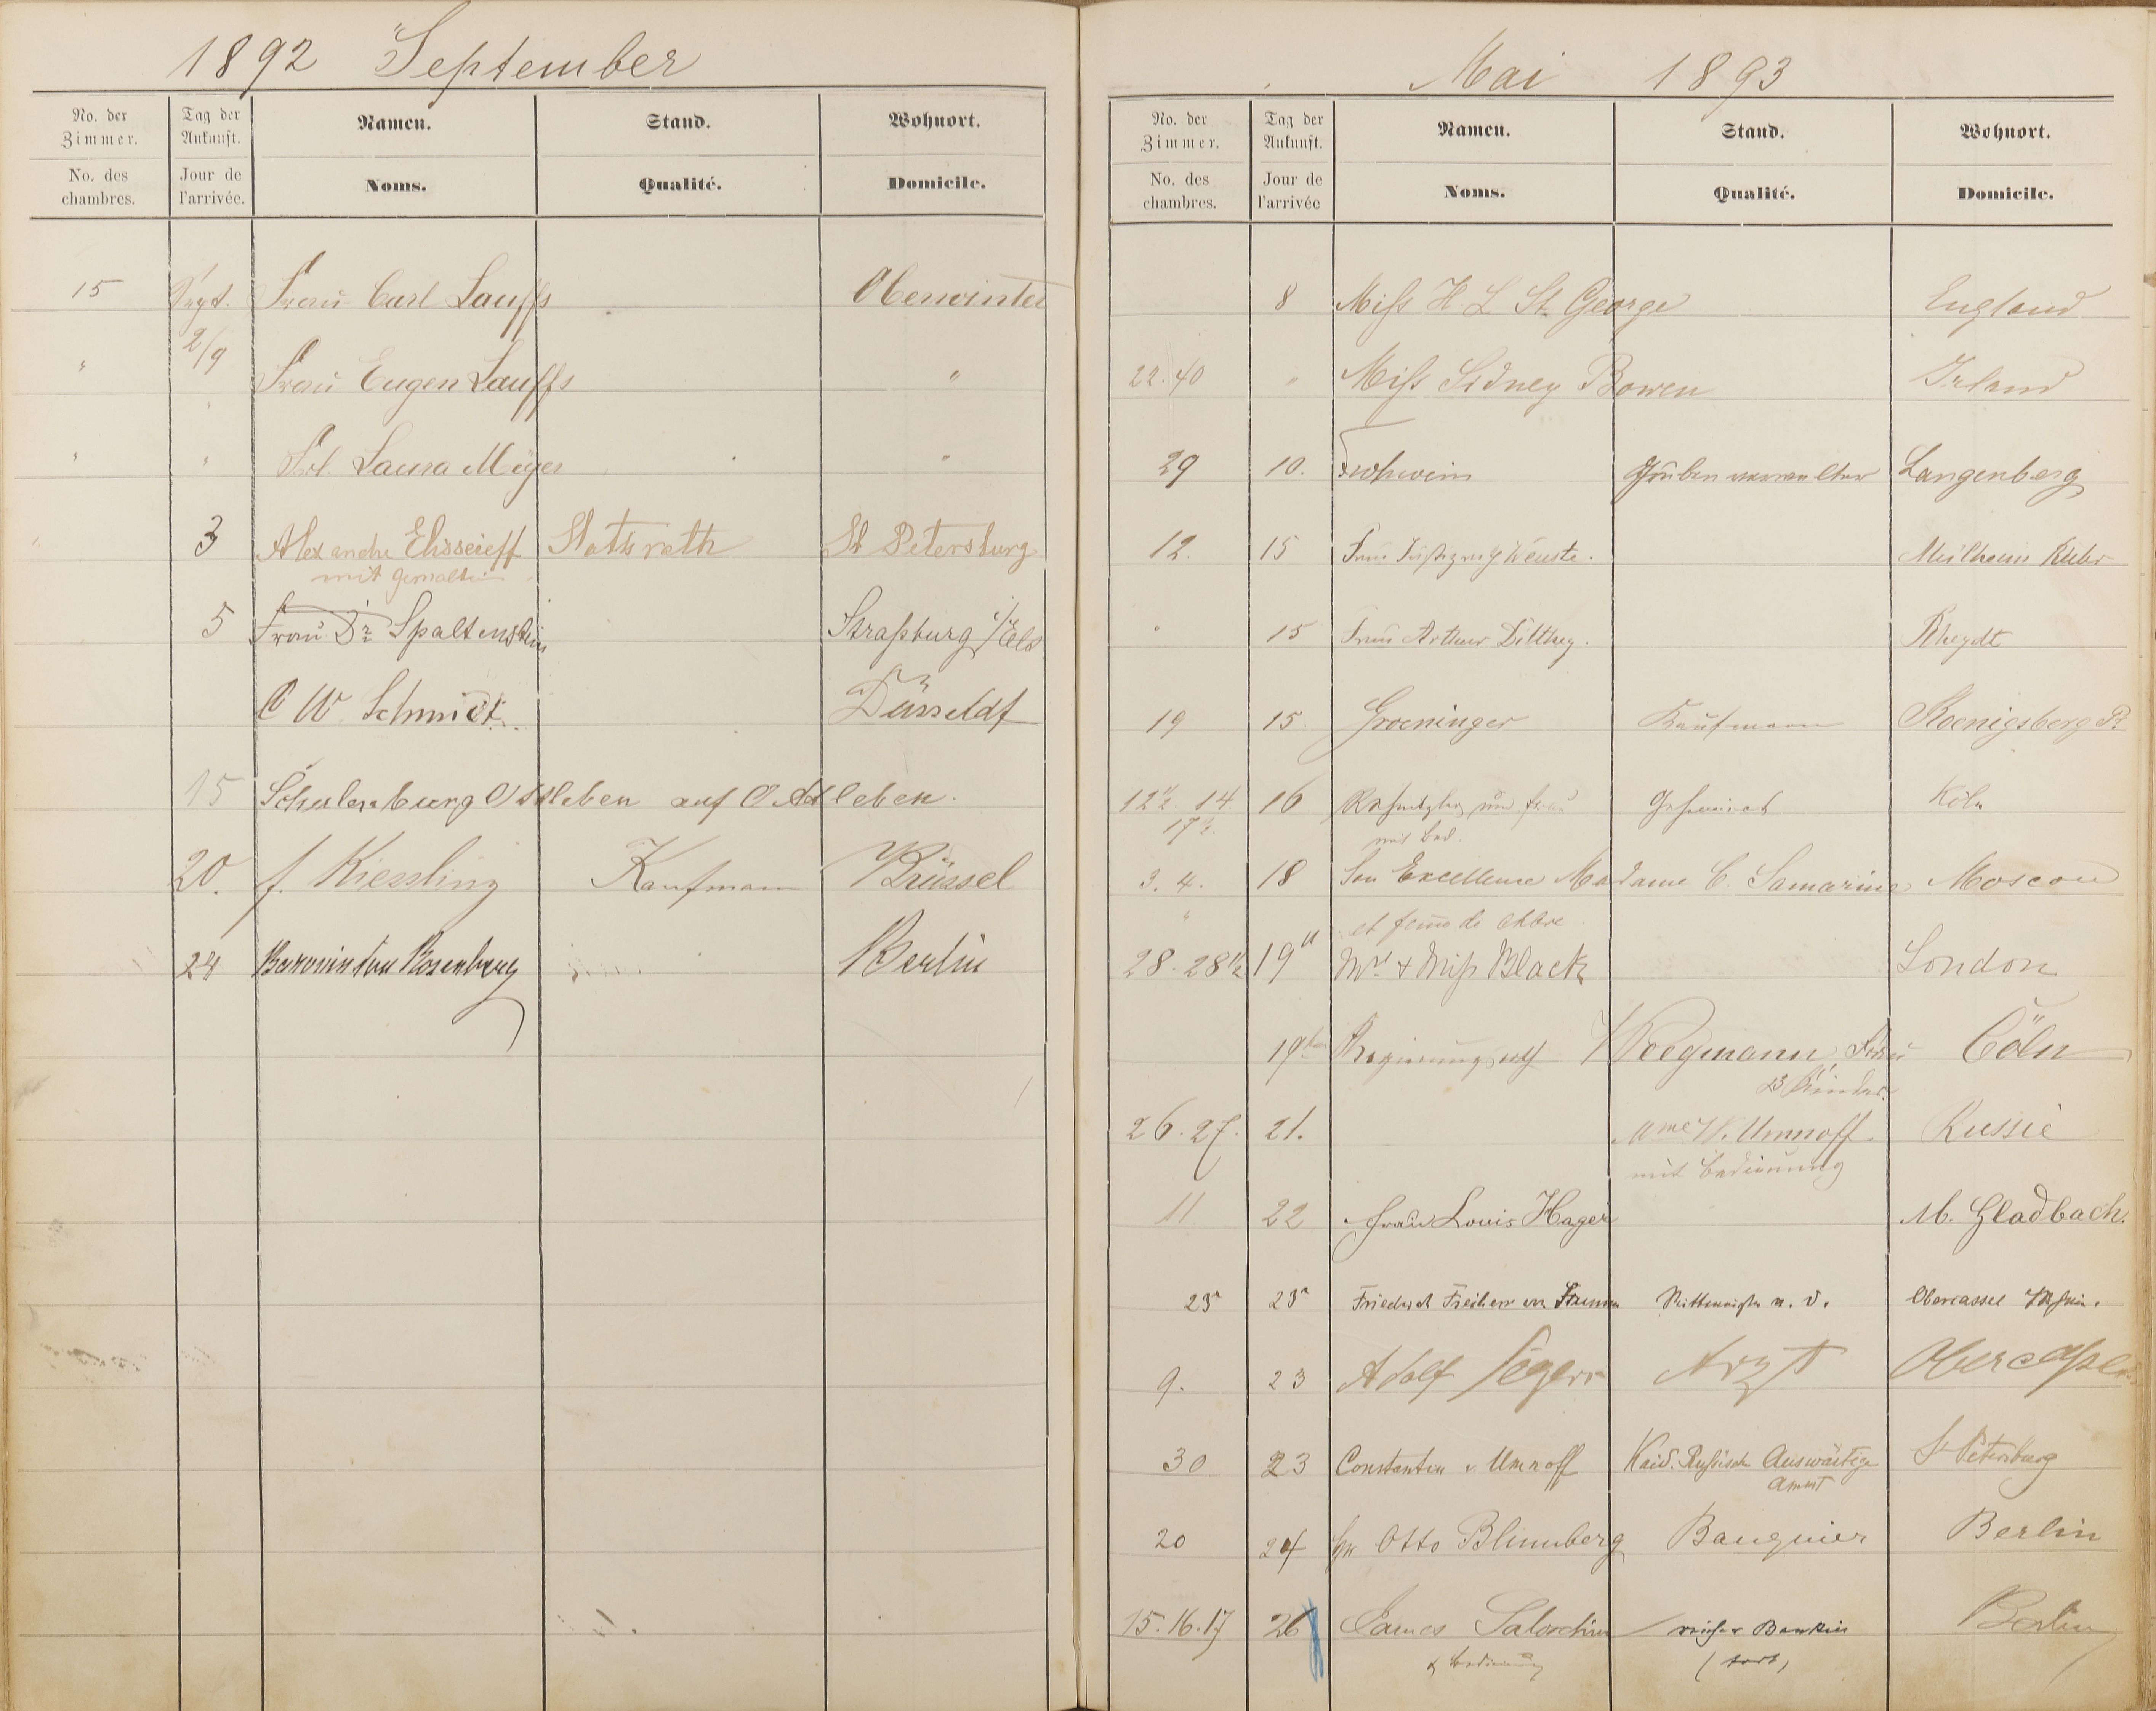 1892 September
No. der Zimmer. Tag der Ankunft. Namen. Stand. Wohnort.
No. des chambres. Jour de l'arrivée. Noms. Qualité. Domicile.
15 Sept. Frau Carl Lauffs Oberwinter
" 2/9 Frau Eugen Lauffs "
" " Frl. Laura Meyer "
3 Alexandre Elisseieff Statsrath St Petersburg
mit Gemahlin
5 Frau Dr Spaltenstein Straßburg i/Els
C W Schmidt Düsseldf
15 Schulenburg Ottleben auf Ottleben.
20. f. Kiessling Kaufmann Brüssel
24 Baronin von Rosenberg Berlin
Mai 1893
No. der Zimmer. Tag der Ankunft. Namen. Stand. Wohnort.
No. des chambres. Jour de l'arrivée Noms. Qualité. Domicile.
8 Miss H L St. George England
22.40 " Miss Sidney Bowen Irland
29 10. Grubenverwalter Langenberg
12. 15 Frau Justizrath Mülheim Ruhr
" 15 Frau Arthur Dilthey. Rheydt
19 15. Groeninger Kaufmann Koenigsberg P.
12½. 14. 16 und Frau Geheimrat Köln
17½. mit Bed.
3. 4. 18 Son Excellence Madame C. Samarine Moscou
" et femme de chbre
28-28½ 19 & Miss Black London
19 Regierungsrath Wegmann Frau Cöln
3 Kinder
26.27. 21. Mme Umnoff Russie
mit Bedienung
11 22 Frau Louis Hager M. Gladbach.
23 Friedrich Freiherr von Rittmeister a. D. Obercassel
9. 23 Adolf Segers Arzt Obercassel
30 23 Constantin v. Umnoff Kais. Russisch Auswärtige St Petersburg
Ammt
20 24 Otto Blumberg Banquier Berlin
15.16.17 26 James Saloschin Berlin
& Bedienung